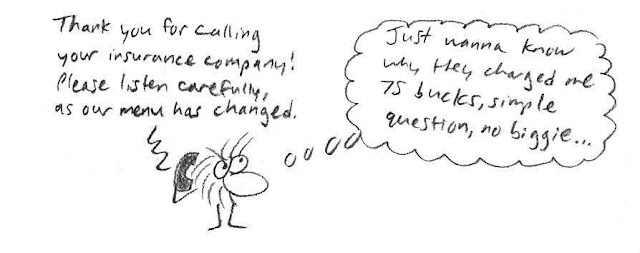 Thank you for calling
your insurance company!
Please listen carefully,
as our menu has changed.
Just wanna know
why they charged me
75 bucks, simple
question, no biggie...